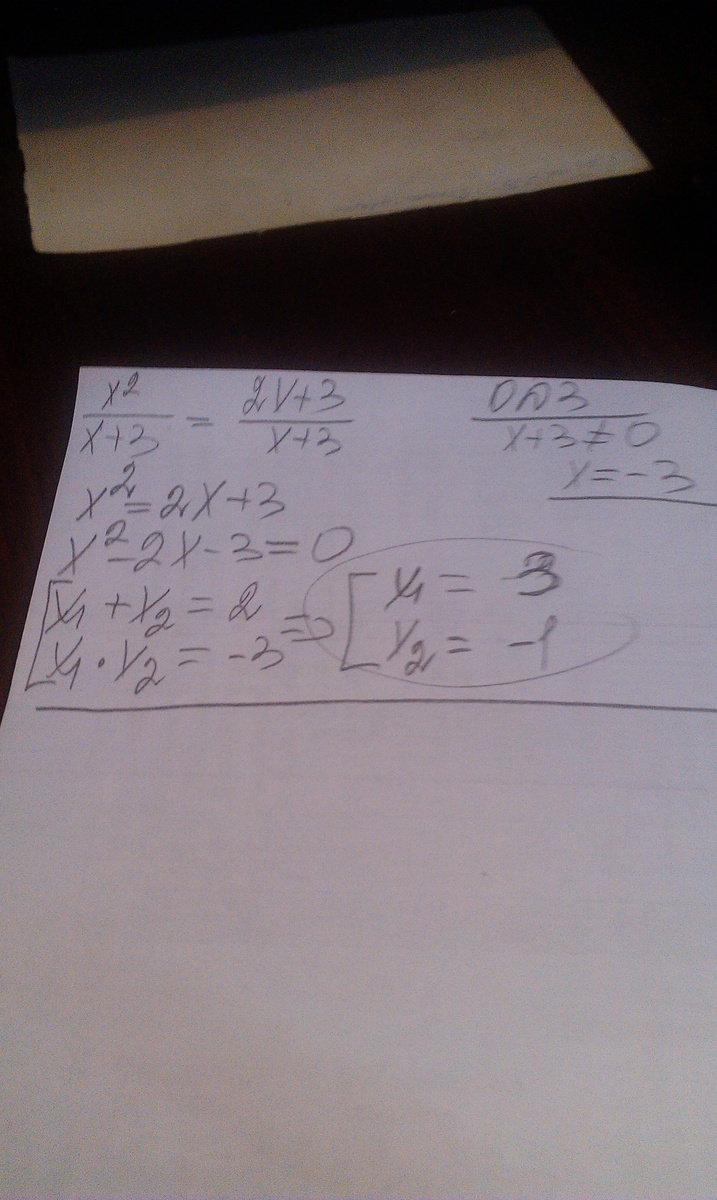 x²/x+3 = 2x+3/x+3
ОДЗ
x+3≠0
x=-3
x²=2x+3
x²-2x-3=0
[x₁+x₂=2
x₁·x₂=-3 => [x₁= 3
x₂= -1